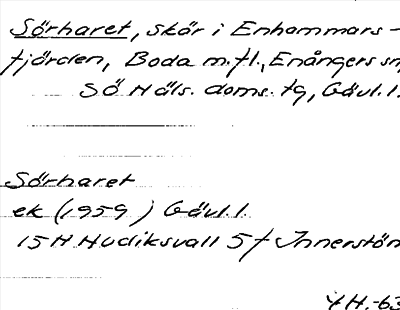 Sörharet, skär i Enhammars-
fjärden, Boda m.fl., Enångers sn,
Sö Häls. doms. tg, Gävl. l.
Sörharet
ek (1959) Gävl. l.
15H Hudiksvall 5f Innerstön
YH.-63